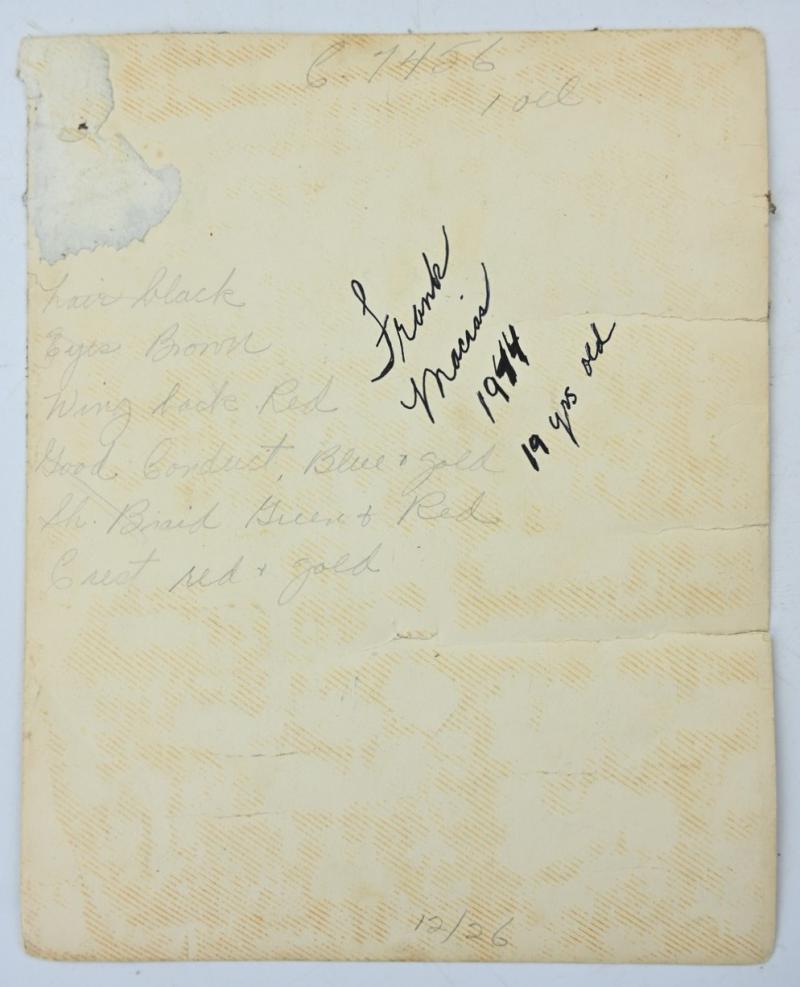 C 7456
1 oil
Frank
Macias
1944
19 yrs old
hair black
Eyes Brown
Wing back Red
Good Conduct, Blue + gold
Sh. Braid Green + Red
Crest red + gold
12/26